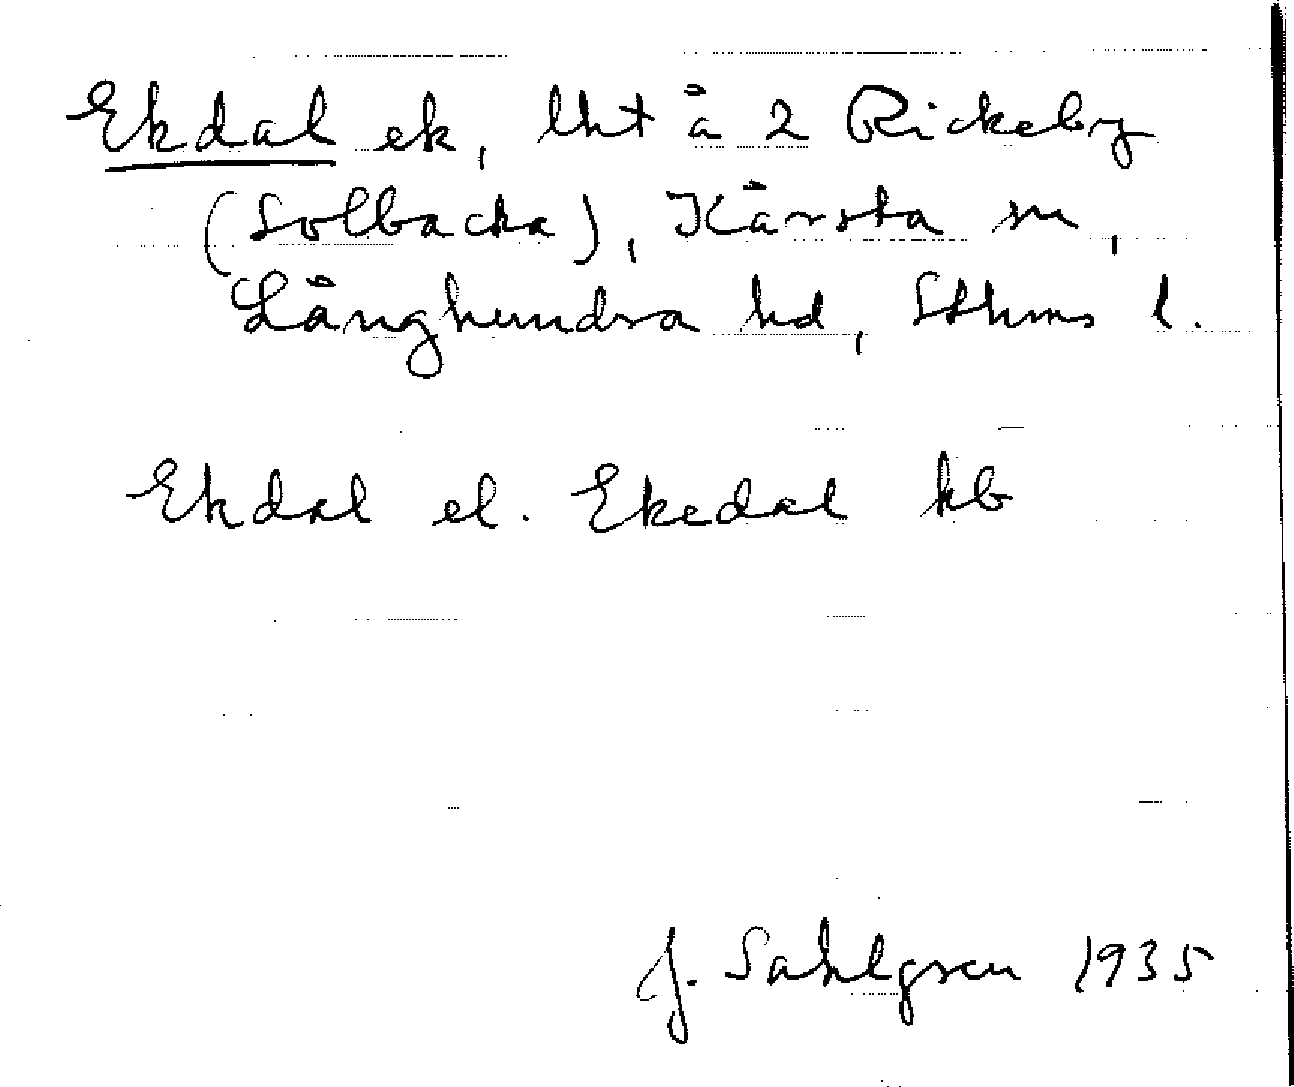 Ekdal ek, lht å 2 Rickeby
(Solbacka), Kårsta sn,
Långhundra hd, Sthms l.
Ekdal el. Ekedal kb
J. Sahlgren 1935